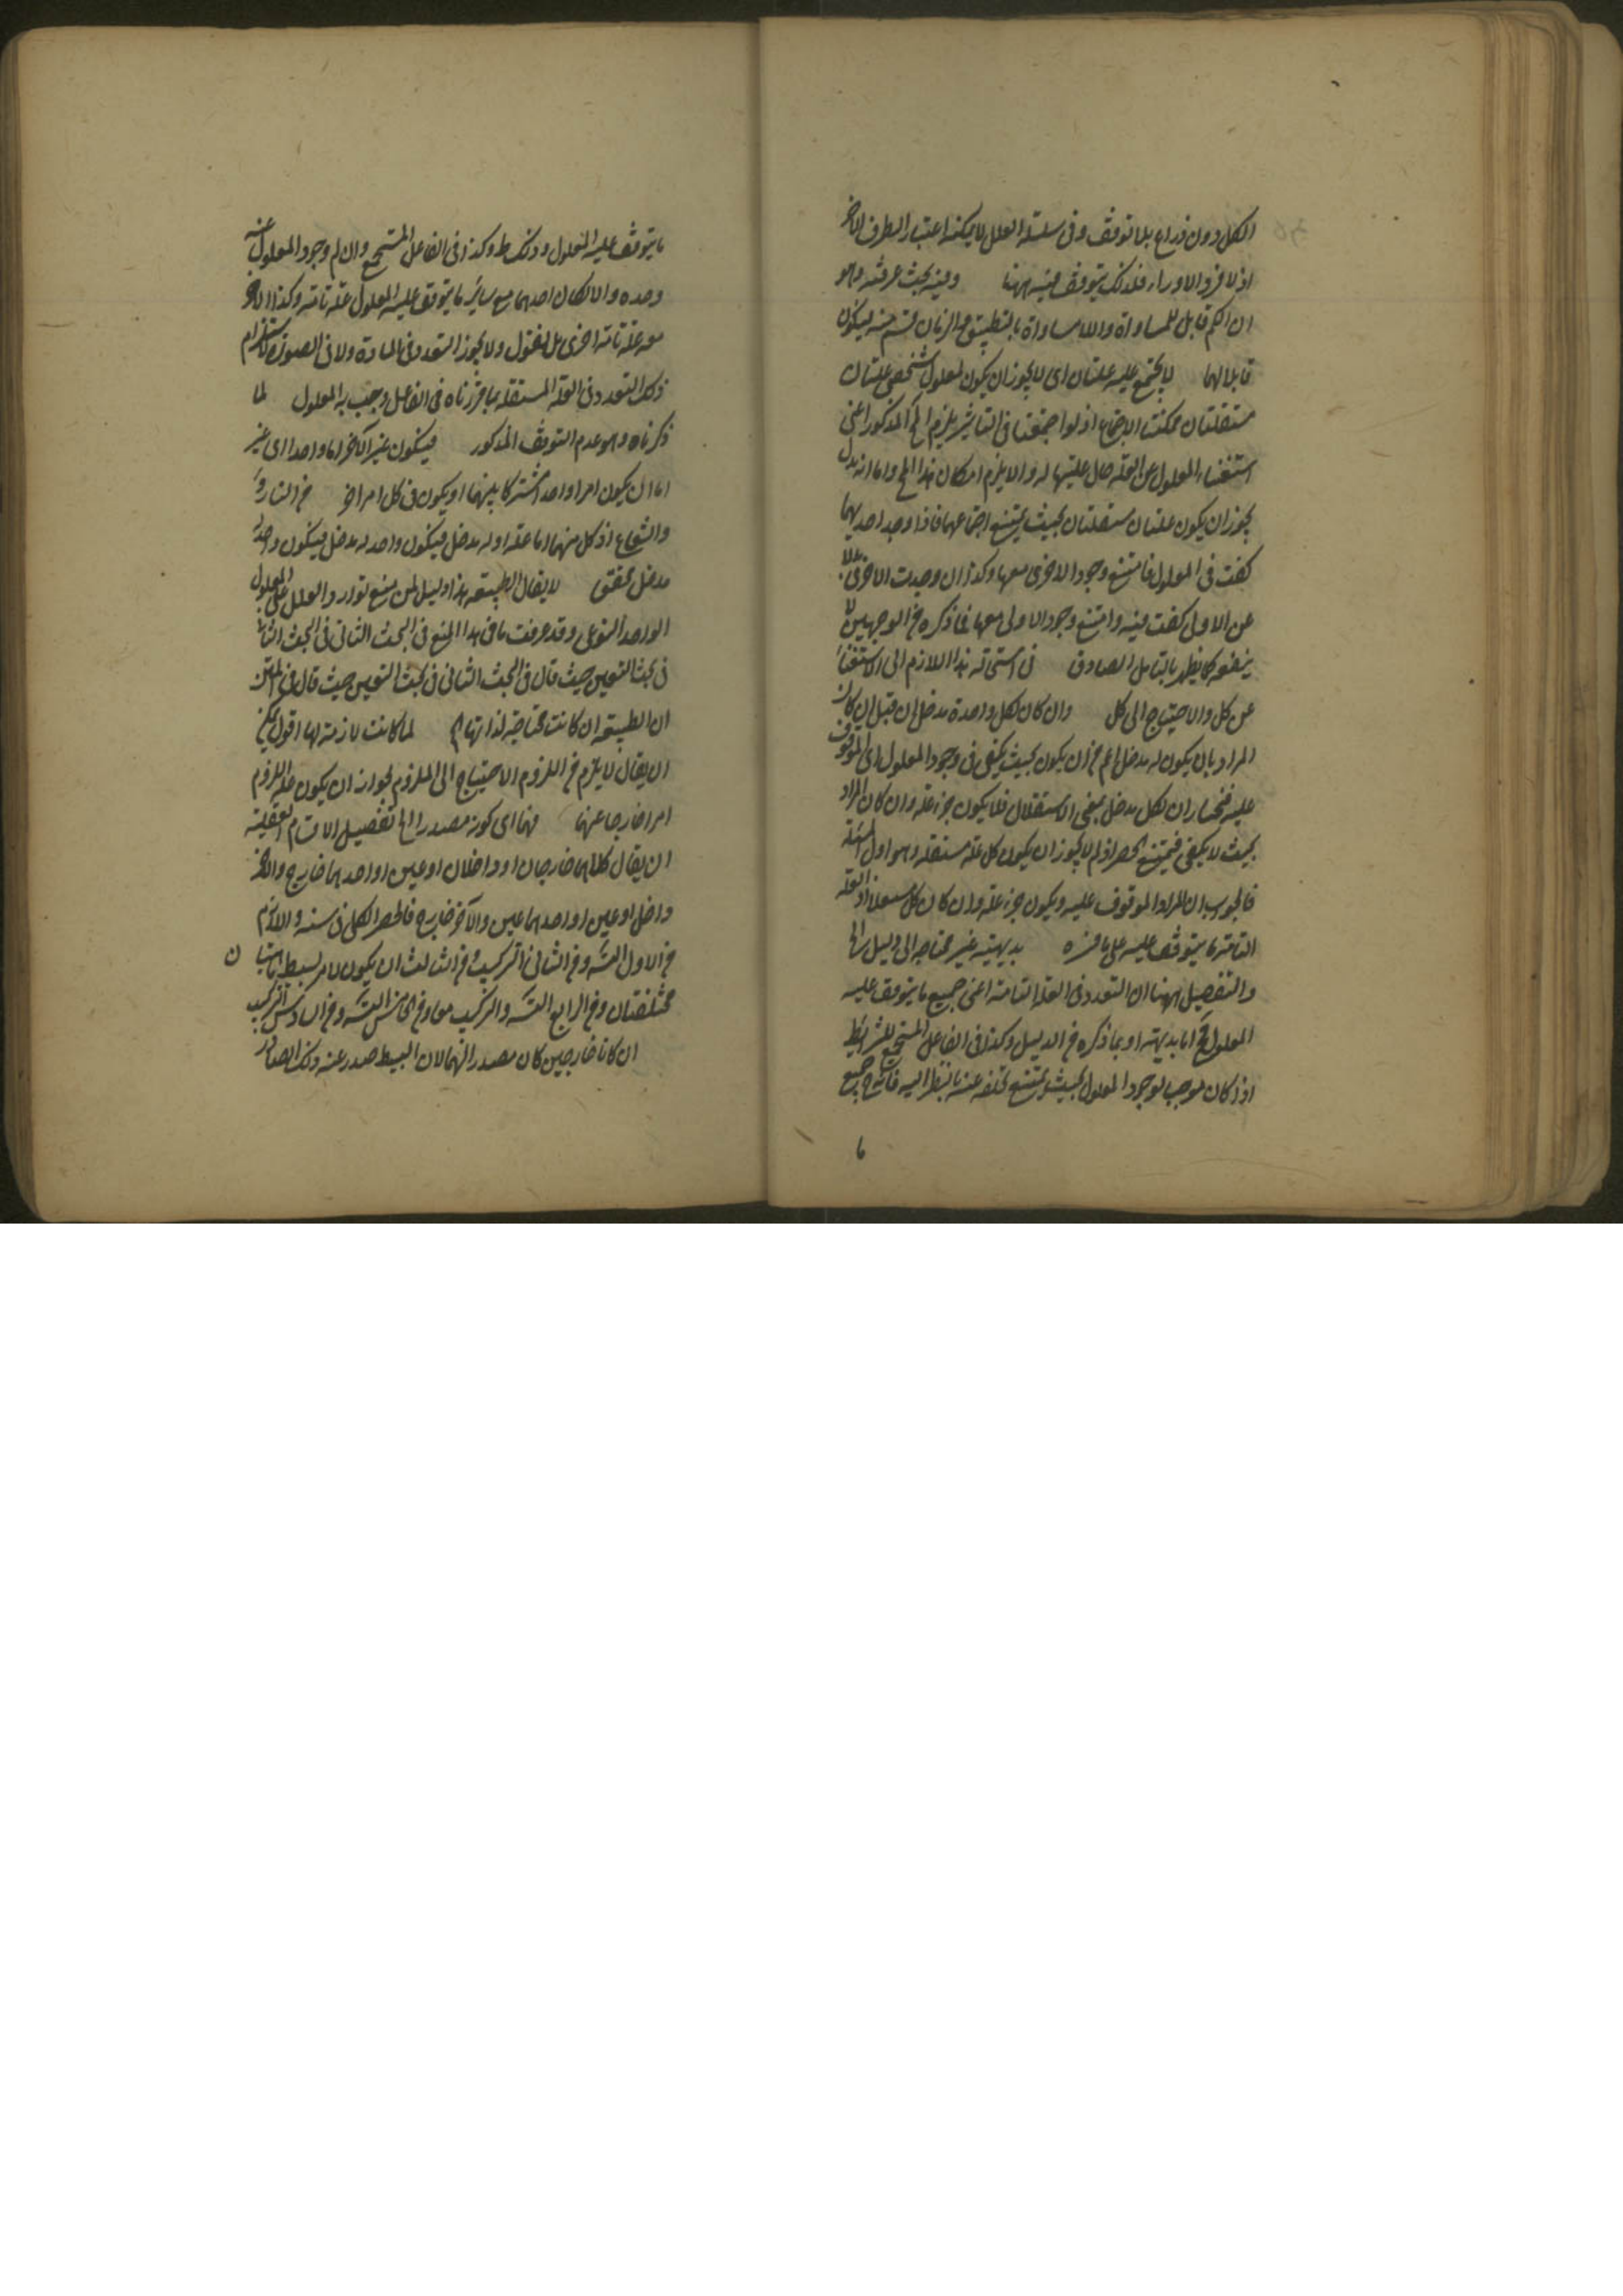 الكل دون ذراع بلا توقف وفى سلسلة العلل لا يمكنه اعتبار الطرف الاخر
اذ لا فرد الا وراء فلذلك يتوقف فيه ههنا وفيه بحث عرفته وهو
ان الكم قابل للمساواة واللامساواة بالتطبيق والزمان قسم منه فيكون
قابلا لهما لا يجتمع عليه علتان اى لا يجوز ان يكون لمعلول شخصى علتان
مستقلتان ممكنتا الاجتماع اذ لو اجتمعتا فى التاثير يلزم المح المذكور اعنى
استغناء المعلول عن العلة حال عليتها له والا يلزم امكان هذا المح واما انه بدل
يجوز ان يكون علتان مستقلتان بحيث يمتنع اجتماعهما فاذا وجد احديهما
كفت فى المعلول فامتنع وجود الاخرى معها وكذا ان وجدت الاخرى بدلا
عن الاولى كفت فيه وامتنع وجود الاولى معها فما ذكره من الوجهين لا
ينفعه كما يظهر بالتامل الصادق فى استحالة هذا اللازم الى الاستغناء
عن كل والاحتياج الى كل وان كان لكل واحدة مدخل ان قيل ان كان
المراد بان يكون له مدخل اعم من ان يكون بحيث يكفى فى وجود المعلول اى الموقوف
عليه فنختار ان لكل مدخل بمعنى الاستقلال فلا يكون جزء علة وان كان المراد
بحيث لا يكفى فيمتنع الحصر اذ لم لا يجوز ان يكون كل علة مستقلة وهو اول المسئلة
فالجواب ان المراد الموقوف عليه ويكون جزء علة وان كان كل مستقلا اذ العلة
التامة ما يتوقف عليه على ما مره بديهية غير محتاجة الى دليل الخ
والتفصيل ههنا ان التعدد فى العلة التامة اعنى جميع ما يتوقف عليه
المعلول مح اما بديهة او بما ذكره من الدليل وكذا فى الفاعل المستجمع للشرائط
اذا كان موجب لوجود المعلول بحيث يمتنع تخلفه عنه بالنظر اليه فانه مع جميع
ما
ما يتوقف عليه المعلول وذلك ظ وكذا فى الفاعل المستجمع وان لم وجود المعلول عنه
وحده والا لكان احدهما مع سائر ما يتوقف عليه المعلول علة تامة وكذا الاخر
معه علة تامة اخرى بل نقول ولا يجوز التعدد فى المادة ولا فى الصورة لاستلزام
ذلك التعدد فى العلة المستقلة بما قررناه فى الفاعل وجب به المعلول لما
ذكرناه وهو عدم التوقف المذكور فيكون غير الآخر اما واحدا اى غير
اما ان يكون امرا واحدا مشتركا بينهما او يكون فى كل امر اخر من النار و
والشعاع اذ كل منهما اما علة او له مدخل فيكون واحد له مدخل فيكون واحد له
مدخل محقق لا يقال الطبيعة هذا دليل لمن منع توارد العلل على المعلول
الواحد النوعى وقد عرفت ما فى هذا المنع فى البحث الثانى فى البحث الثانى
فى بحث التعين حيث قال فى البحث الثانى فى بحث التعين حيث قال فى المتن
ان الطبيعة ان كانت محتاجة لذاتها الخ لما كانت لازمة لها اقول يمكن
ان يقال لا يلزم من اللزوم الاحتياج الى الملزوم لجواز ان يكون علة اللزوم
امرا خارجا عنها فهما اى كونه مصدرا الخ تفصيل الاقسام العقلية
ان يقال كلاهما خارجان او داخلان او عين او احدهما خارج والآخر
داخل او عين او احدهما عين والآخر خارج فانحصر الكلى فى ستة والازم
من الاول التسلسل ومن الثانى التركيب ومن الثالث ان يكون لامر بسيط ماهيتان
مختلفتان ومن الرابع التسلسل والتركيب معا ومن الخامس التسلسل ومن السادس التركيب
ان كانا خارجين كان مصدرا لهما لان البسيط صدر عنه ذلك الصادر